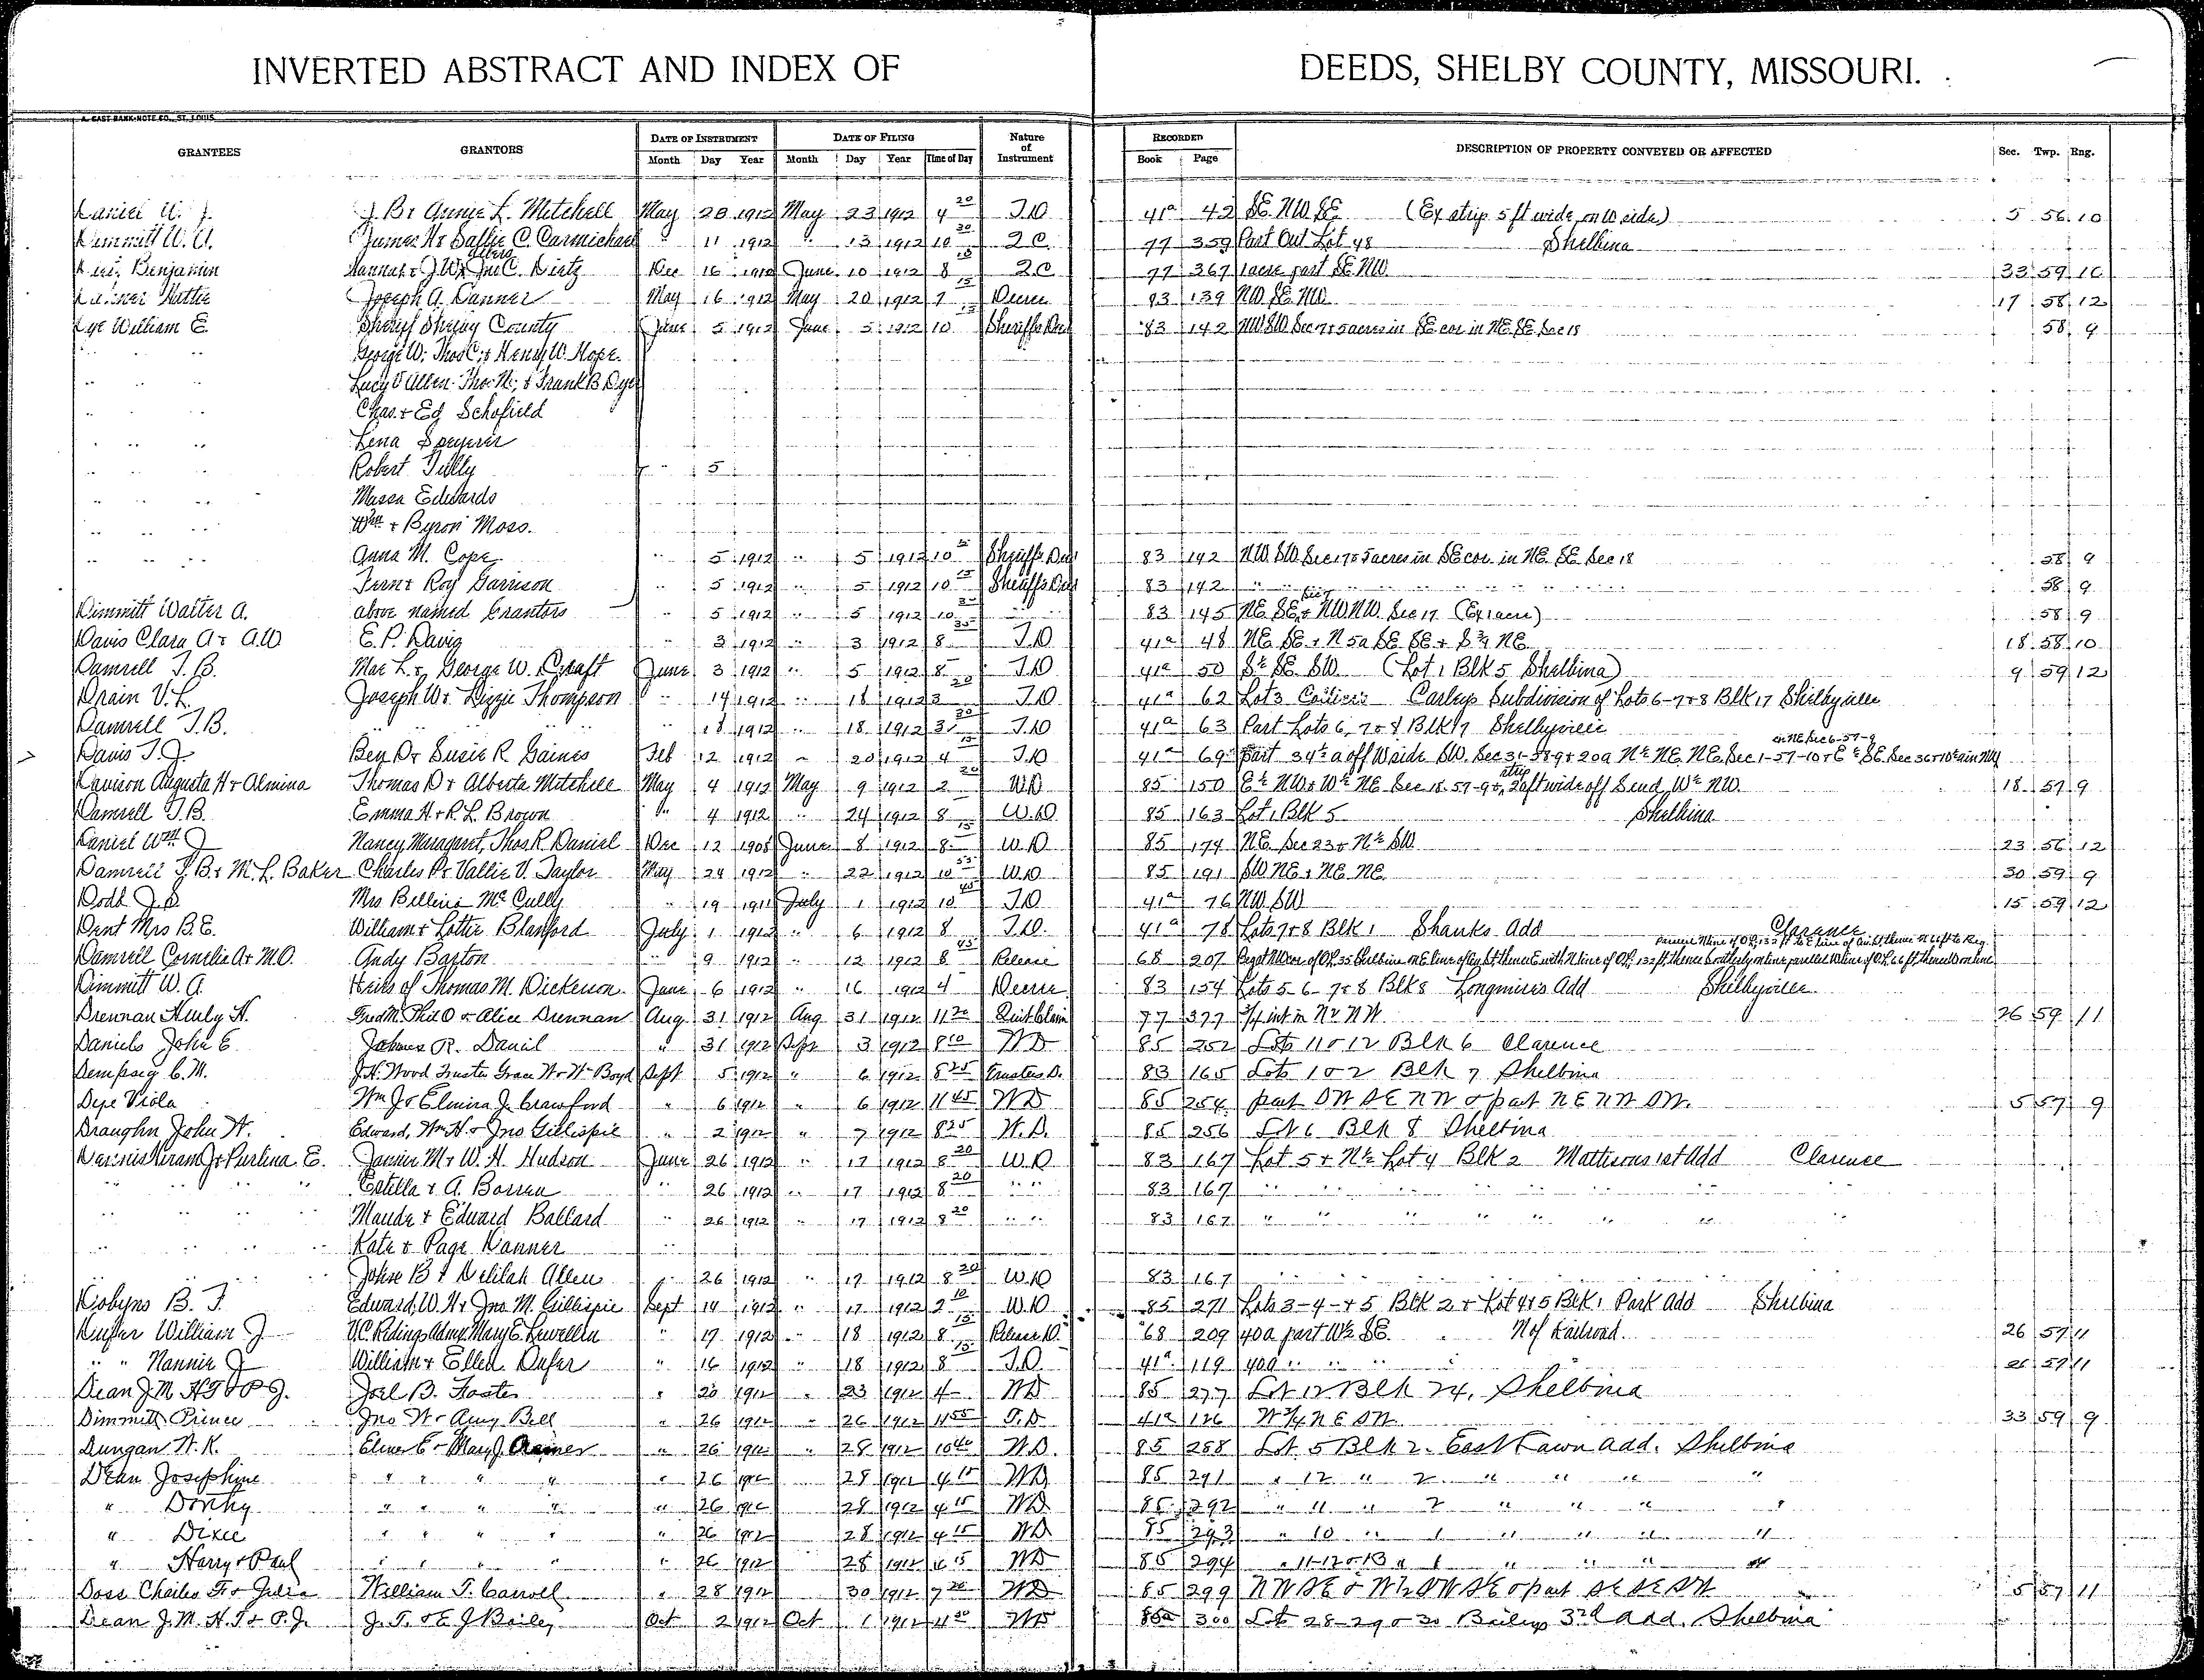 INVERTED ABSTRACT AND INDEX OF DEEDS, SHELBY COUNTY, MISSOURI.
A. GAST BANK-NOTE CO., ST. LOUIS
GRANTEES GRANTORS DATE OF INSTRUMENT DATE OF FILING Nature of Instrument RECORDED DESCRIPTION OF PROPERTY CONVEYED OR AFFECTED Sec. Twp. Rng.
Month Day Year Month Day Year Time of Day Book Page
Daniel W. J. J. B & Annie L. Mitchell May 28 1912 May 23 1912 4 20 T.D 41a 42 SE. NW SE (Ex strip 5 ft wide on W side) 5 56 10
Dimmitt W. A. James H & Sallie C. Carmichael " 11 1912 " 13 1912 10 20 2C 77 359 Part Out Lot 48 Shelbina
Benjamin Hannah & J.W & Jno C. Dietz Dec 16 1912 June 10 1912 8 2C 77 367 1 acre part SE. NW. 33 59 10
Hattie Joseph A. Danner May 16 1912 May 20 1912 9 15 Decree 83 139 NW SE NW 17 58 12
Dye William E. Sheriff Shelby County June 5 1912 June 5 1912 10 15 Sheriffs Deed 83 142 NW SW Sec 17 & 5 acres in SE cor in NE. SE. Sec 18 58 9
" " " George W. Thos C. & Henry W. Hope.
" " " Lucy V Allen. Thos N. & Frank B Dye
" " " Chas. & Ed Schofield
" " " Lena
" " " Robert Tully " 5
" " " Massa Edwards
" " " Wm & Byron Moss.
" " " Anna M. Cope " 5 1912 " 5 1912 10 15 Sheriffs Deed 83 142 NW. SW. Sec 17 & 5 acres in SE cor. in NE. SE Sec 18 58 9
Fern & Roy Garrison " 5 1912 " 5 1912 10 15 Sheriffs Deed 83 142 " " " " 58 9
Dimmitt Walter A. above named Grantors " 5 1912 " 5 1912 10 " 83 145 NE SE, & NW NW. Sec 17 (Ex 1 acre) 58 9
Davis Clara A & A.W E. P. Davis " 3 1912 " 3 1912 8 35 T.D 41a 48 NE SE & N 5a SE SE & S 3/4 NE 18 58 10
Damrell T. B. Mae L. & George W. Craft June 3 1912 " 5 1912 8 T.D 41a 50 S½ SE. SW. (Lot 1 Blk 5 Shelbina) 9 59 12
Drain V. L. Joseph W & Lizzie Thompson " 14 1912 " 18 1912 3 20 T.D 41a 62 Lot 3 Carleys Subdivision of Lots 6-7 & 8 Blk 17 Shelbyville
Damrell T.B. " " " 18 1912 " 18 1912 3 20 T.D 41a 63 Part Lots 6, 7 & 8 Blk 17 Shelbyville
Davis T. J. Ben D & Susie R Gaines Feb 12 1912 " 20 1912 4 15 T.D 41a 69 Part 34½ a off W side SW. Sec 31-58-9 & 20a N½ NE, NE, Sec 1-57-10 & E½ SE. Sec 36 & 10½ a in NW on NE Sec 6-57-9
Davison Augusta H & Almina Thomas D & Alberta Mitchell May 4 1912 May 9 1912 2 20 W.D 85 150 E½ NW & W½ NE Sec 18. 57-9 & strip 2 ft wide off S end W½ NW. 18 57 9
Damrell T.B. Emma H & R. L. Brown " 4 1912 " 24 1912 8 W.D 85 163 Lot 1 Blk 5 Shelbina
Daniel Wm J Nancy Maragaret, Thos R. Daniel Dec 12 1908 June 8 1912 8 15 W.D 85 174 NE. Sec 23 & N½ SW. 23 56 12
Damrell T. B. & M. L. Baker Charles P & Vallie V. Taylor May 24 1912 " 22 1912 10 55 W.D 85 191 SW NE & NE. NE. 30 59 9
Dodd J. S. Mrs Bellina McCully " 19 1911 July 1 1912 10 45 T.D 41a 76 NW SW 15 59 12
Dent Mrs B.E. William & Lottie Blanford July 1 1912 " 6 1912 8 T.D. 41a 78 Lots 7 & 8 Blk 1 Shanks Add Clarence
Damrell Cornelia A & M.O. Andy Barton " 9 1912 " 12 1912 8 45 Release 68 207
Dimmitt W. A. Heirs of Thomas M. Dickerson June 6 1912 " 16 1912 4 Decree 83 154 Lots 5-6-7 & 8 Blk 8 Longmires Add Shelbyville
Drennan Huly H. Fred M. Phil O & Alice Drennan Aug 31 1912 Aug 31 1912 11 20 Quit Claim 77 377 3/4 int in N½ NW. 26 59 11
Daniels John E R. Danil " 31 1912 Sept 3 1912 8 10 WD 85 252 Lots 11 & 12 Blk 6 Clarence
Dempsey C. M. J.H. Wood Trustee Grace W & Wm Boyd Sept 5 1912 " 6 1912 8 25 Trustees D. 83 165 Lots 1 & 2 Blk 7 Shelbina
Dye Viola Wm J & Elmira J. Crawford " 6 1912 " 6 1912 11 45 WD 85 254 part SW SE NW & part NE NW SW. 5 57 9
Draughn John W. Edward, Wm H. & Jno Gillispie " 2 1912 " 7 1912 8 25 W.D. 85 256 Lot 6 Blk 8 Shelbina
Dennis Hiram J & Purlina E. Jannie M & W. H. Hudson June 26 1912 " 17 1912 8 20 W.D 83 167 Lot 5 & N½ Lot 4 Blk 2 Mathews 1st Add Clarence
" " " Estella & A. Borren " 26 1912 " 17 1912 8 20 " " 83 167 " " " "
" " " Maude & Edward Ballard " 26 1912 " 17 1912 8 20 " " 83 167 " " " "
" " " Kate & Page Danner "
" " " John B & Delilah Allen " 26 1912 " 17 1912 8 20 W.D 83 167 " " " "
Dobyns B. F. Edward, W. H & Jno. M. Gillispie Sept 14 1912 " 17 1912 2 10 W.D 85 271 Lots 3-4-& 5 Blk 2 & Lot 4 & 5 Blk 1 Park Add Shelbina
Dufer William J V.C. Ridings Admr. Mary E. Lewellen " 17 1912 " 18 1912 8 15 Release D. 68 209 40a part W½ SE. N of Railroad 26 57 11
" " Nannie J William & Ellen Dufer " 16 1912 " 18 1912 8 15 T.D. 41a 119 40a " " " 26 57 11
Dean J. M. H.T & P J. Joel B. Foster " 20 1912 " 23 1912 4 WD 85 277 Lot 12 Blk 24, Shelbina
Dimmitt Prince Jno W & Amy Bell " 26 1912 " 26 1912 11 55 T.D 41a 126 W 3/4 NE SW. 33 59 9
Dungan W. K. Elmer E & Mary J. Cramer " 26 1912 " 28 1912 10 40 W.D. 85 288 Lot 5 Blk 2. East Lawn add. Shelbina
Dean Josephine " " " " " 26 1912 28 1912 4 15 WD 85 291 " 12 " 2 " " " "
" Dorthy " " " " " 26 1912 28 1912 4 15 WD 85 292 " 11 " 2 " " " "
" Dixie " " " " " 26 1912 28 1912 4 15 WD 85 293 " 10 " 1 " " " "
" Harry & Paul " " " " " 26 1912 28 1912 4 15 WD 85 294 " 11-12 & 13 " 1 " " " "
Doss Charles F. & Julia William T. Carroll " 28 1912 30 1912 7 20 WD 85 299 NW SE & W½ SW SE & part SE SE SW 5 57 11
Dean J. M. H. T & P. J. J. T. & E. J Bailey Oct 2 1912 Oct 1 1912 4 20 WD 85 300 Lots 28-29 & 30 Baileys 3rd add. Shelbina